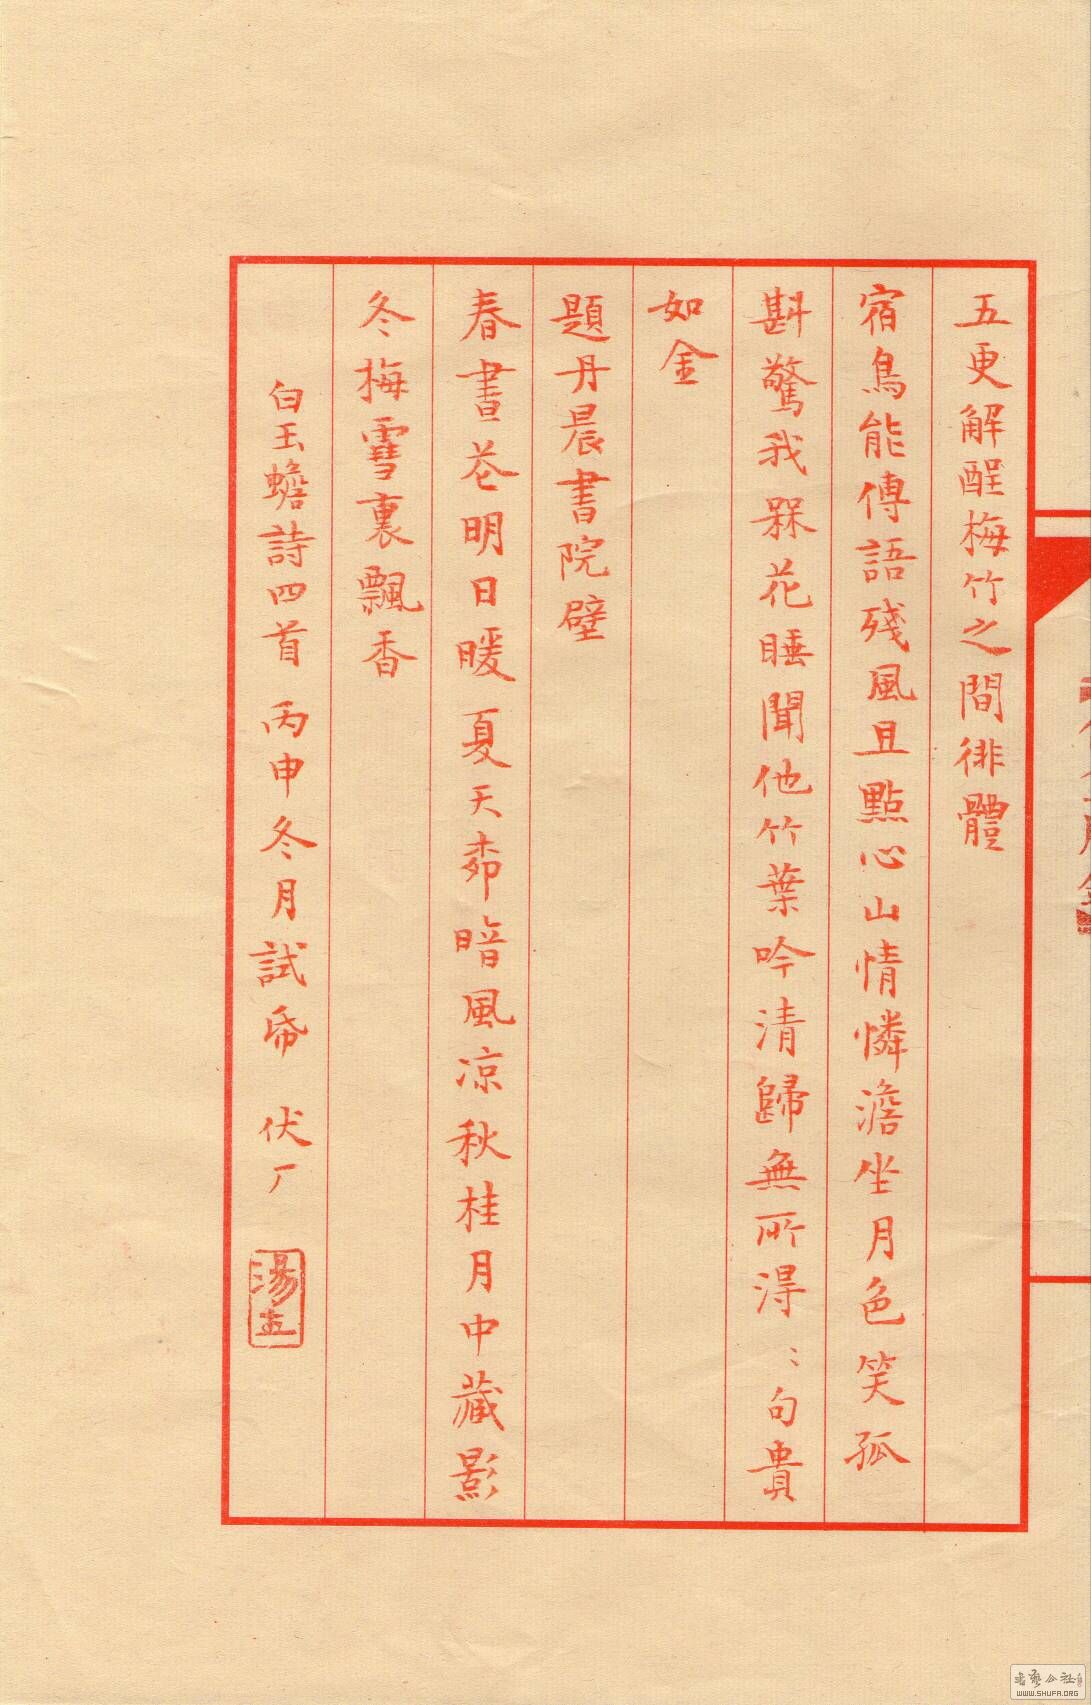 五更解酲梅竹之間徘體
宿鳥能傳語殘風且點心山情憐澹坐月色笑孤
斟驚我槑花睡聞他竹葉吟清歸無所得〻句貴
如金
題丹晨書院壁
春晝芲明日暖夏天桺暗風凉秋桂月中藏影
冬梅雪裏飄香
白玉蟾詩四首 丙申冬月試帋 伏厂
湯
WWW.SHUFA.ORG